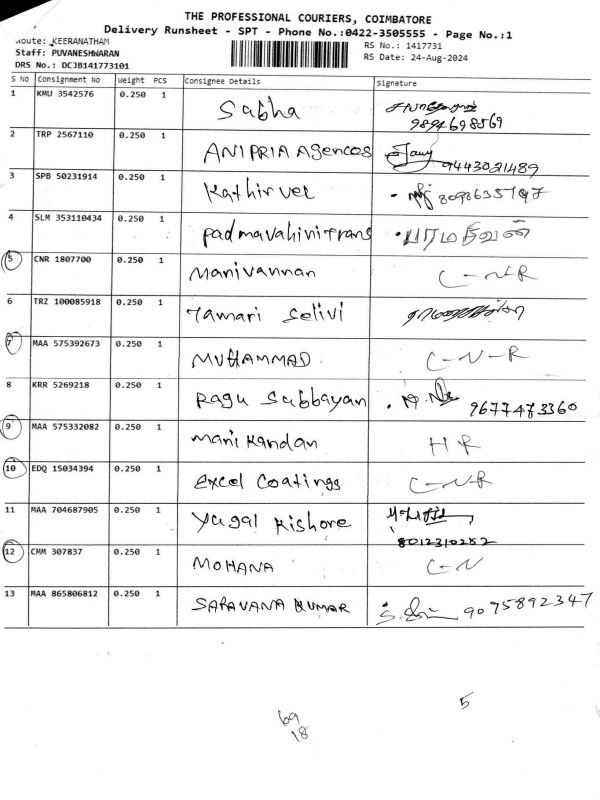 THE PROFESSIONAL COURIERS, COIMBATORE
Delivery Runsheet - SPT - Phone No.:0422-3505555 - Page No.:1
Route: KEERANATHAM
Staff: PUVANESHWARAN
DRS No.: DCJB141773101
RS No.: 1417731
RS Date: 24-Aug-2024
S No Consignment No Weight PCS Consignee Details Signature
1 KMU 3542576 0.250 1 Sabha
9894698569
2 TRP 2567110 0.250 1 ANIPRIA Agences 9443021489
3 SPB 50231914 0.250 1 Kathirvel
4 SLM 353110434 0.250 1 Padmavahinitrans பரமசிவன்
5 CNR 1807700 0.250 1 Manivannan C-N-R
6 TRZ 100085918 0.250 1 Tamari Selivi
7 MAA 575392673 0.250 1 MUHAMMAD C-N-R
8 KRR 5269218 0.250 1 Ragu Subbayan 9677473360
9 MAA 575332082 0.250 1 Manikandan HR
10 EDQ 15034394 0.250 1 Excel Coatings C-N-R
11 MAA 704687905 0.250 1 Yugal Kishore
8012310282
12 CMM 307837 0.250 1 MOHANA C-N
13 MAA 865806812 0.250 1 SARAVANA KUMAR 9075892347
5
69
18